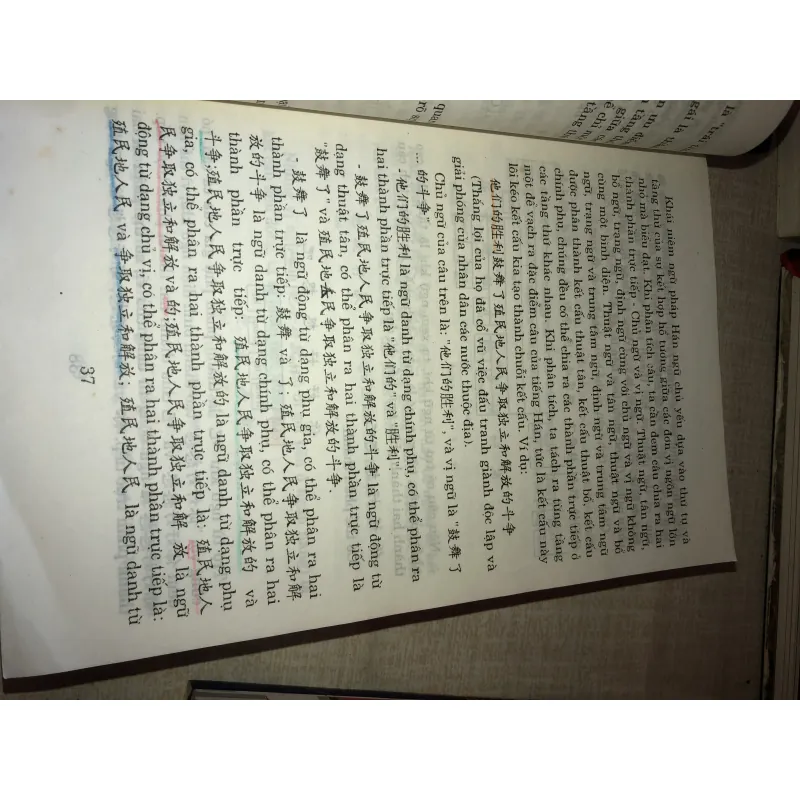 Khái niệm ngữ pháp Hán ngữ chủ yếu dựa vào thứ tự và
tầng thứ của sự kết hợp hỗ tương giữa các đơn vị ngôn ngữ lớn
nhỏ mà biểu đạt. Khi phân tích câu, ta cần đem câu chia ra hai
thành phần trực tiếp: Chủ ngữ và vị ngữ. Thuật ngữ, tân ngữ,
bổ ngữ, trạng ngữ, định ngữ cùng với chủ ngữ và vị ngữ không
cùng một bình diện. Thuật ngữ và tân ngữ, thuật ngữ và bổ
ngữ, trạng ngữ và trung tâm ngữ, định ngữ và trung tâm ngữ
được phân thành kết cấu thuật tân, kết cấu thuật bổ, kết cấu
chính phụ, chúng đều có thể chia ra các thành phần trực tiếp ở
các tầng thứ khác nhau. Khi phân tích, ta tách ra từng tầng
một để vạch ra đặc điểm câu của tiếng Hán, tức là kết cấu này
lôi kéo kết cấu kia tạo thành chuỗi kết cấu. Ví dụ:
他们的胜利鼓舞了殖民地人民争取独立和解放的斗争
(Thắng lợi của họ đã cổ vũ việc đấu tranh giành độc lập và
giải phóng của nhân dân các nước thuộc địa).
Chủ ngữ của câu trên là: "他们的胜利", và vị ngữ là "鼓舞了
... 的斗争".
- 他们的胜利 là ngữ danh từ dạng chính phụ, có thể phân ra
hai thành phần trực tiếp là "他们的" và "胜利".
- 鼓舞了殖民地人民争取独立和解放的斗争 là ngữ động từ
dạng thuật tân, có thể phân ra hai thành phần trực tiếp là
"鼓舞了" và 殖民地人民争取独立和解放的斗争.
- 鼓舞了 là ngữ động từ dạng phụ gia, có thể phân ra hai
thành phần trực tiếp: 鼓舞 và 了; 殖民地人民争取独立和解
放的斗争 là ngữ danh từ dạng chính phụ, có thể phân ra hai
thành phần trực tiếp: 殖民地人民争取独立和解放的 và
斗争;殖民地人民争取独立和解放的 là ngữ danh từ dạng phụ
gia, có thể phân ra hai thành phần trực tiếp là: 殖民地人
民争取独立和解放 và 的;殖民地人民争取独立和解 放 là ngữ
động từ dạng chủ vị, có thể phân ra hai thành phần trực tiếp là:
殖民地人民 và 争取独立和解放; 殖民地人民 là ngữ danh từ
37